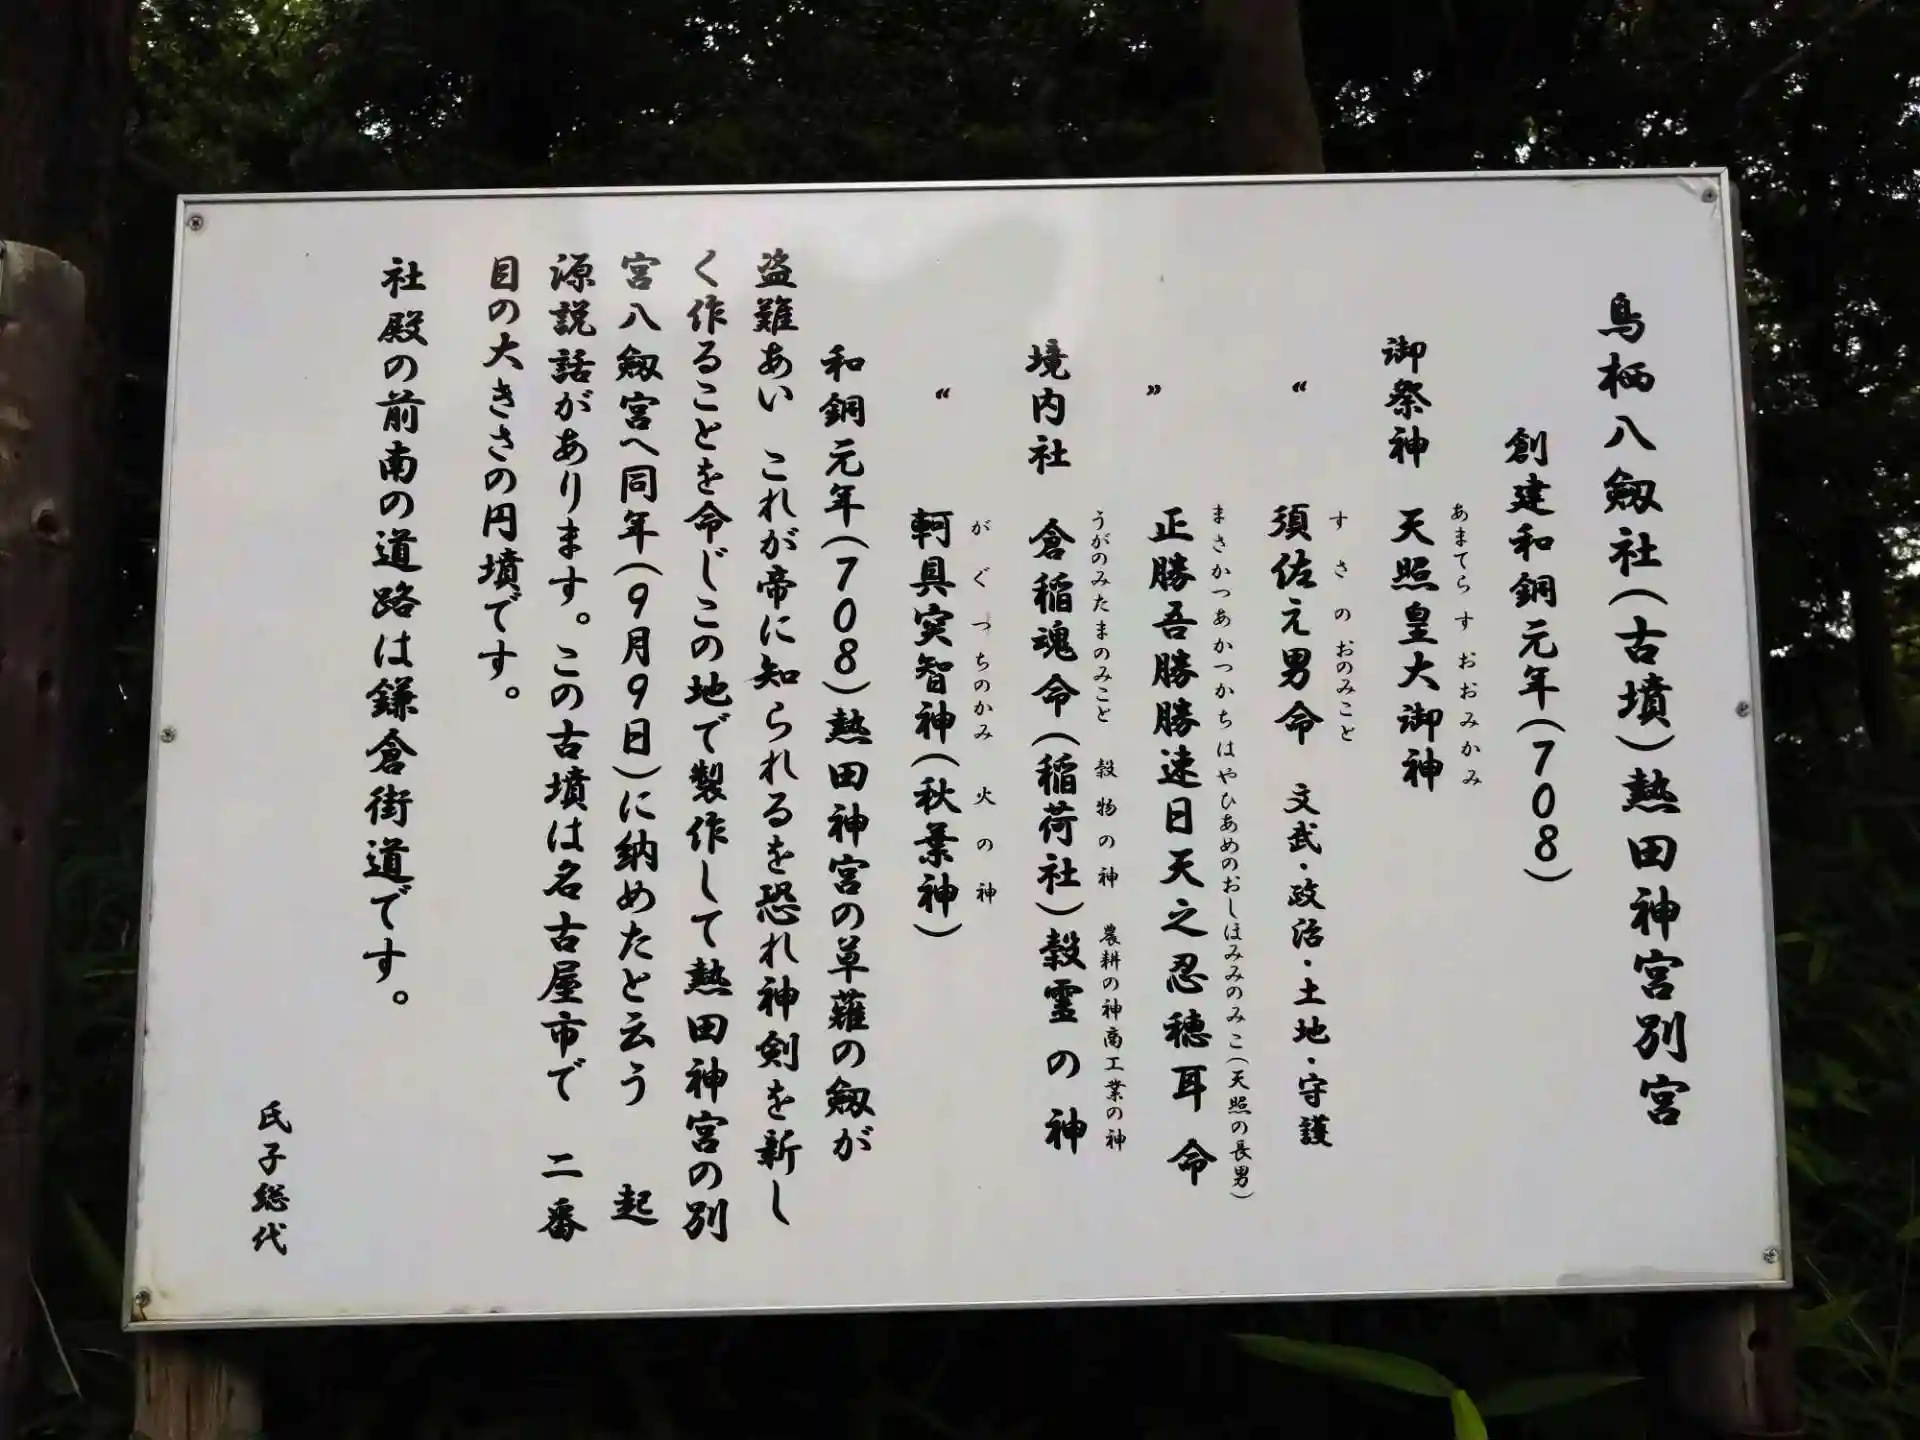 鳥栖八劔社(古墳)熱田神宮別宮
創建和銅元年(708)
御祭神 天照皇大御神
あまてらすおおみかみ
〃 須佐之男命 文武・政治・土地・守護
すさのおのみこと
〃 正勝吾勝勝速日天之忍穂耳命
まさかつあかつかちはやひあめのおしほみみのみこ(天照の長男)
境内社 倉稲魂命(稲荷社)穀霊の神
うがのみたまのみこと 穀物の神 農耕の神商工業の神
〃 軻具突智神(秋葉神)
がぐつちのかみ 火の神
和銅元年(708)熱田神宮の草薙の劔が
盗難あい これが帝に知られるを恐れ神剣を新し
く作ることを命じこの地で製作して熱田神宮の別
宮八劔宮へ同年(9月9日)に納めたと云う 起
源説話があります。この古墳は名古屋市で 二番
目の大きさの円墳です。
社殿の前南の道路は鎌倉街道です。
氏子総代